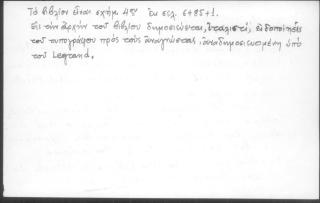 Τὸ βιβλίον εἶναι σχῆμ. 4ον Ἐκ σελ. 6+85+1.
Εἰς τὴν ἀρχὴν τοῦ βιβλίου δημοσιεύεται, ἰταλιστί, εἰδοποίησις
τοῦ τυπογράφου πρὸς τοὺς ἀναγνώστας, ἀναδημοσιευομένη ὑπὸ
τοῦ Legrand.